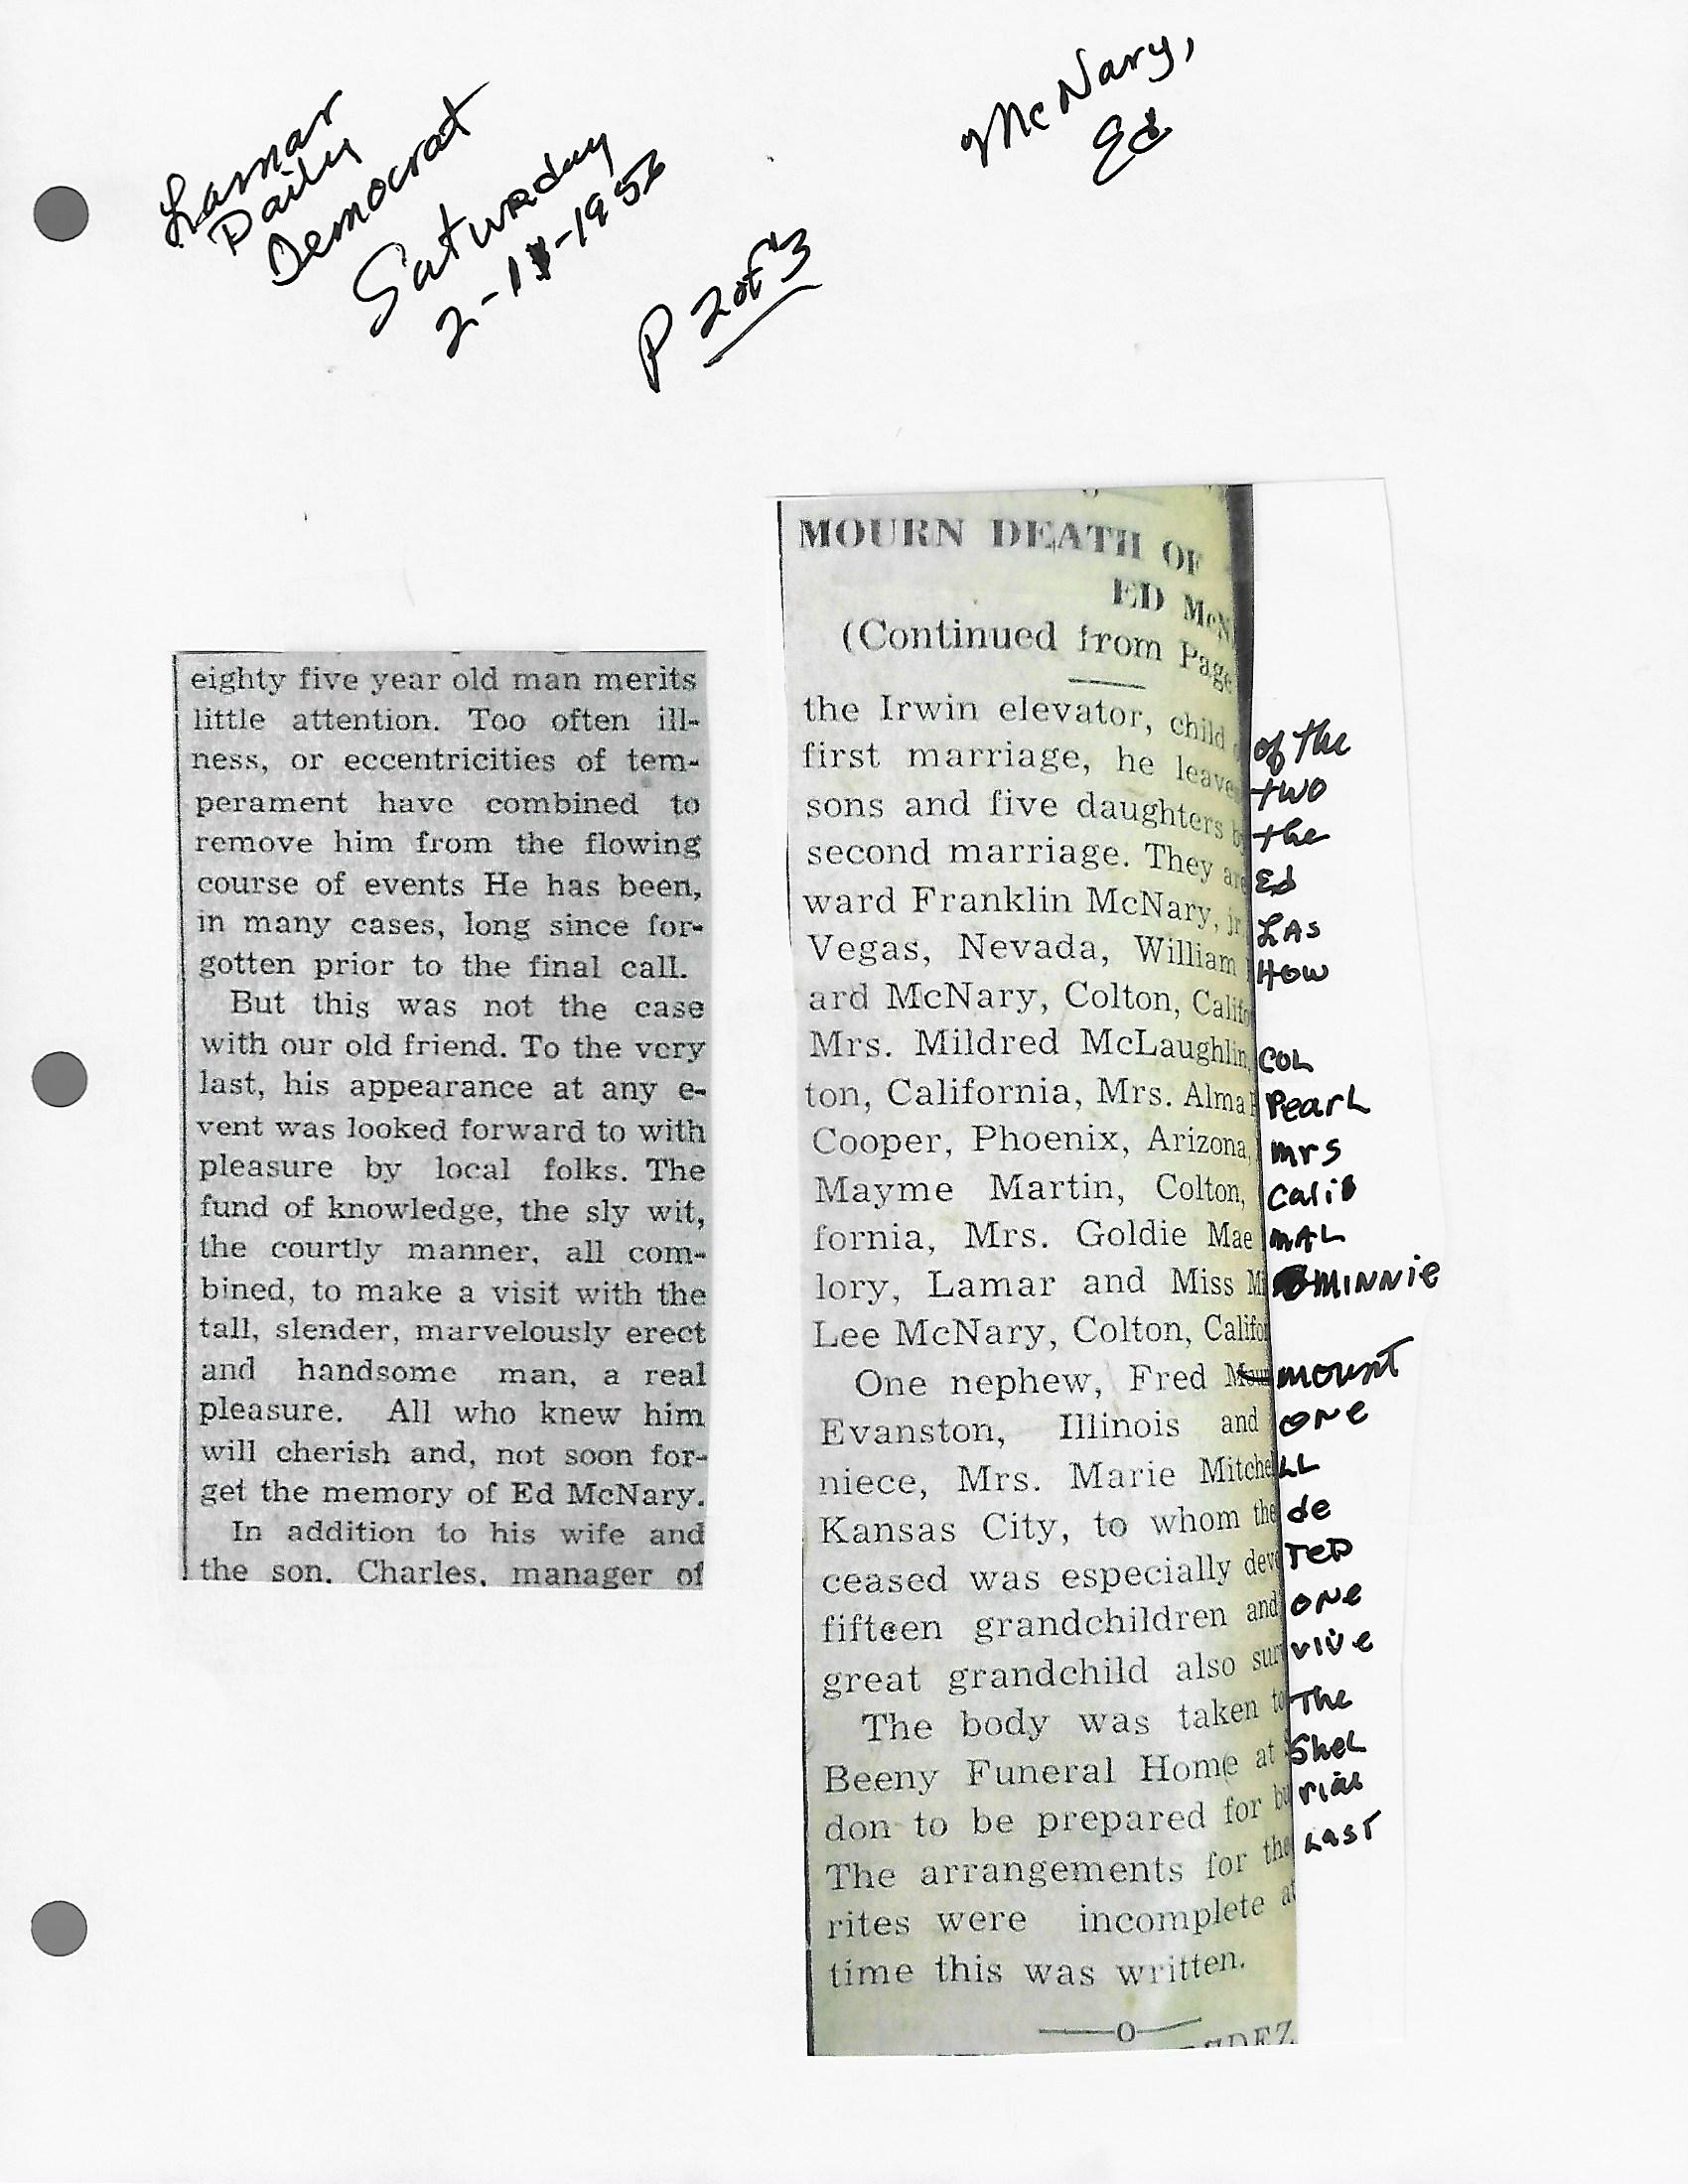 Lamar
Daily
Democrat
Saturday
2-11-1956
P 2 of 3
McNary,
Ed
eighty five year old man merits
little attention. Too often ill-
ness, or eccentricities of tem-
perament have combined to
remove him from the flowing
course of events He has been,
in many cases, long since for-
gotten prior to the final call.
But this was not the case
with our old friend. To the very
last, his appearance at any e-
vent was looked forward to with
pleasure by local folks. The
fund of knowledge, the sly wit,
the courtly manner, all com-
bined, to make a visit with the
tall, slender, marvelously erect
and handsome man, a real
pleasure. All who knew him
will cherish and, not soon for-
get the memory of Ed McNary.
In addition to his wife and
the son, Charles, manager of
MOURN DEATH OF
ED McN
(Continued from Page
the Irwin elevator, child of the
first marriage, he leaves two
sons and five daughters by the
second marriage. They are Ed
ward Franklin McNary, jr. Las
Vegas, Nevada, William How
ard McNary, Colton, Califo
Mrs. Mildred McLaughlin, COL
ton, California, Mrs. Alma Pearl
Cooper, Phoenix, Arizona, mrs
Mayme Martin, Colton, Cali
fornia, Mrs. Goldie Mae MAL
lory, Lamar and Miss Mi MINNie
Lee McNary, Colton, Califo
One nephew, Fred mount
Evanston, Illinois and one
niece, Mrs. Marie Mitche LL
Kansas City, to whom the de
ceased was especially devo TED
fifteen grandchildren and one
great grandchild also sur vive
The body was taken to The
Beeny Funeral Home at Shel
don to be prepared for bu rial
The arrangements for the Last
rites were incomplete at
time this was written.
O